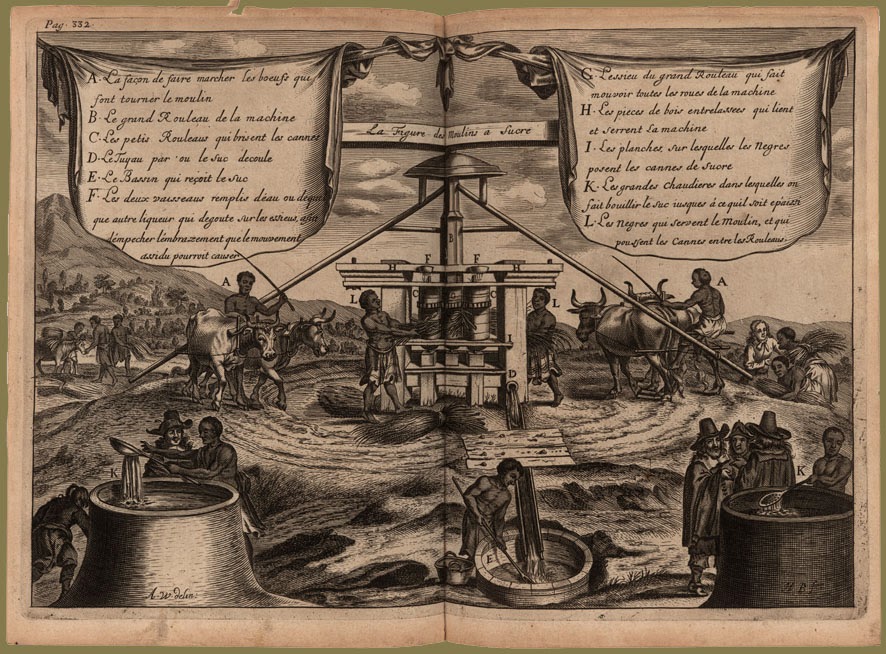 Pag. 332
A. La façon de faire marcher les boeufs qui
font tourner le moulin
B. Le grand Rouleau de la machine
C. Les petis Rouleaus qui brisent les cannes
D. Le Tuyau par ou le suc decoule
E. Le Bassin qui reçoit le suc
F. Les deux vaisseaus remplis d'eau ou de quel
que autre liqueur qui degoute sur les essieus, afin
d'empecher l'embrazement que le mouvement
assidu pourroit causer
La Figure des Moulins a Sucre
G. L'essieu du grand Rouleau qui fait
mouvoir toutes les roues de la machine
H. Les pieces de bois entrelassees qui lient
et serrent la machine
I. Les planches, sur lesquelles les Negres
posent les cannes de sucre
K. Les grandes chaudieres dans lesquelles on
fait bouillir le suc iusques à ce qu'il soit epaissi
L. Les Negres qui servent le Moulin, et qui
poussent les Cannes entre les Rouleaus.
B
H F F H
A L C C L A
I
D
K K
E
A. W. delin.